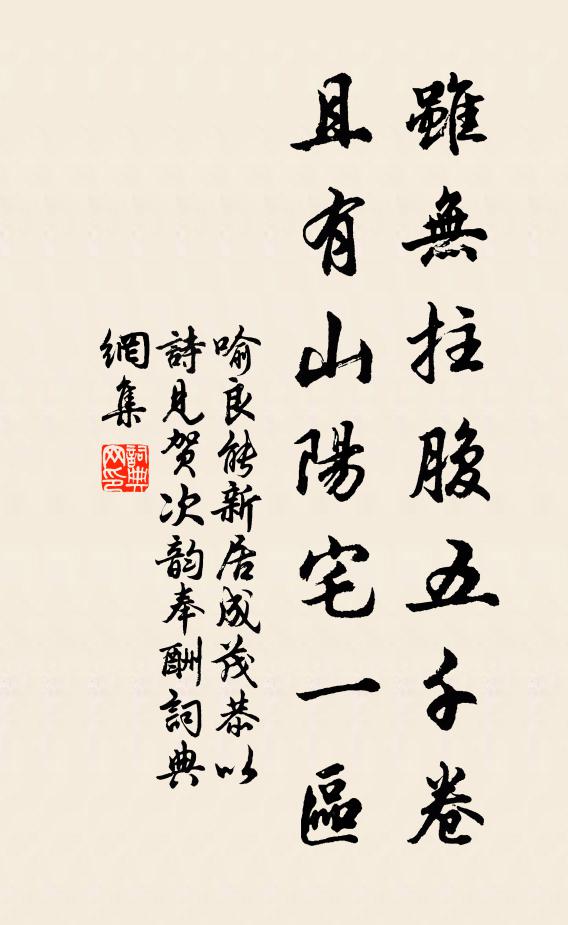 雖無拄腹五千卷
且有山陽宅一區
喻良能新居成茂恭以
詩見賀次韵奉酬詞典
網集
詞典
网印